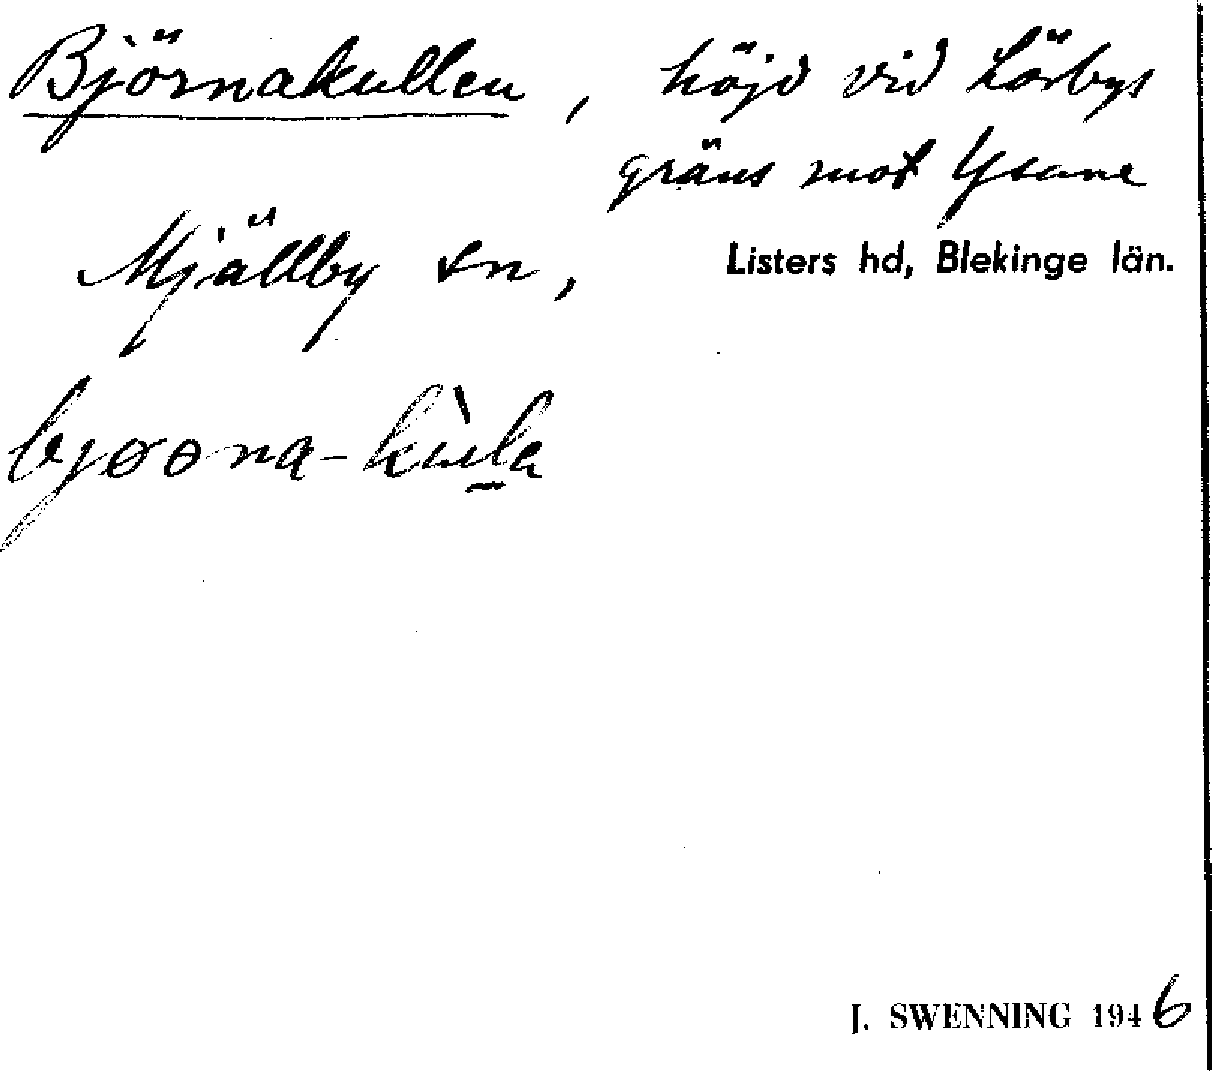 Björnakullen, höjd vid Lörbys
gräns mot Ysane
Mjällby sn, Listers hd, Blekinge län.
bjøona-kùla
J. SWENNING 1946